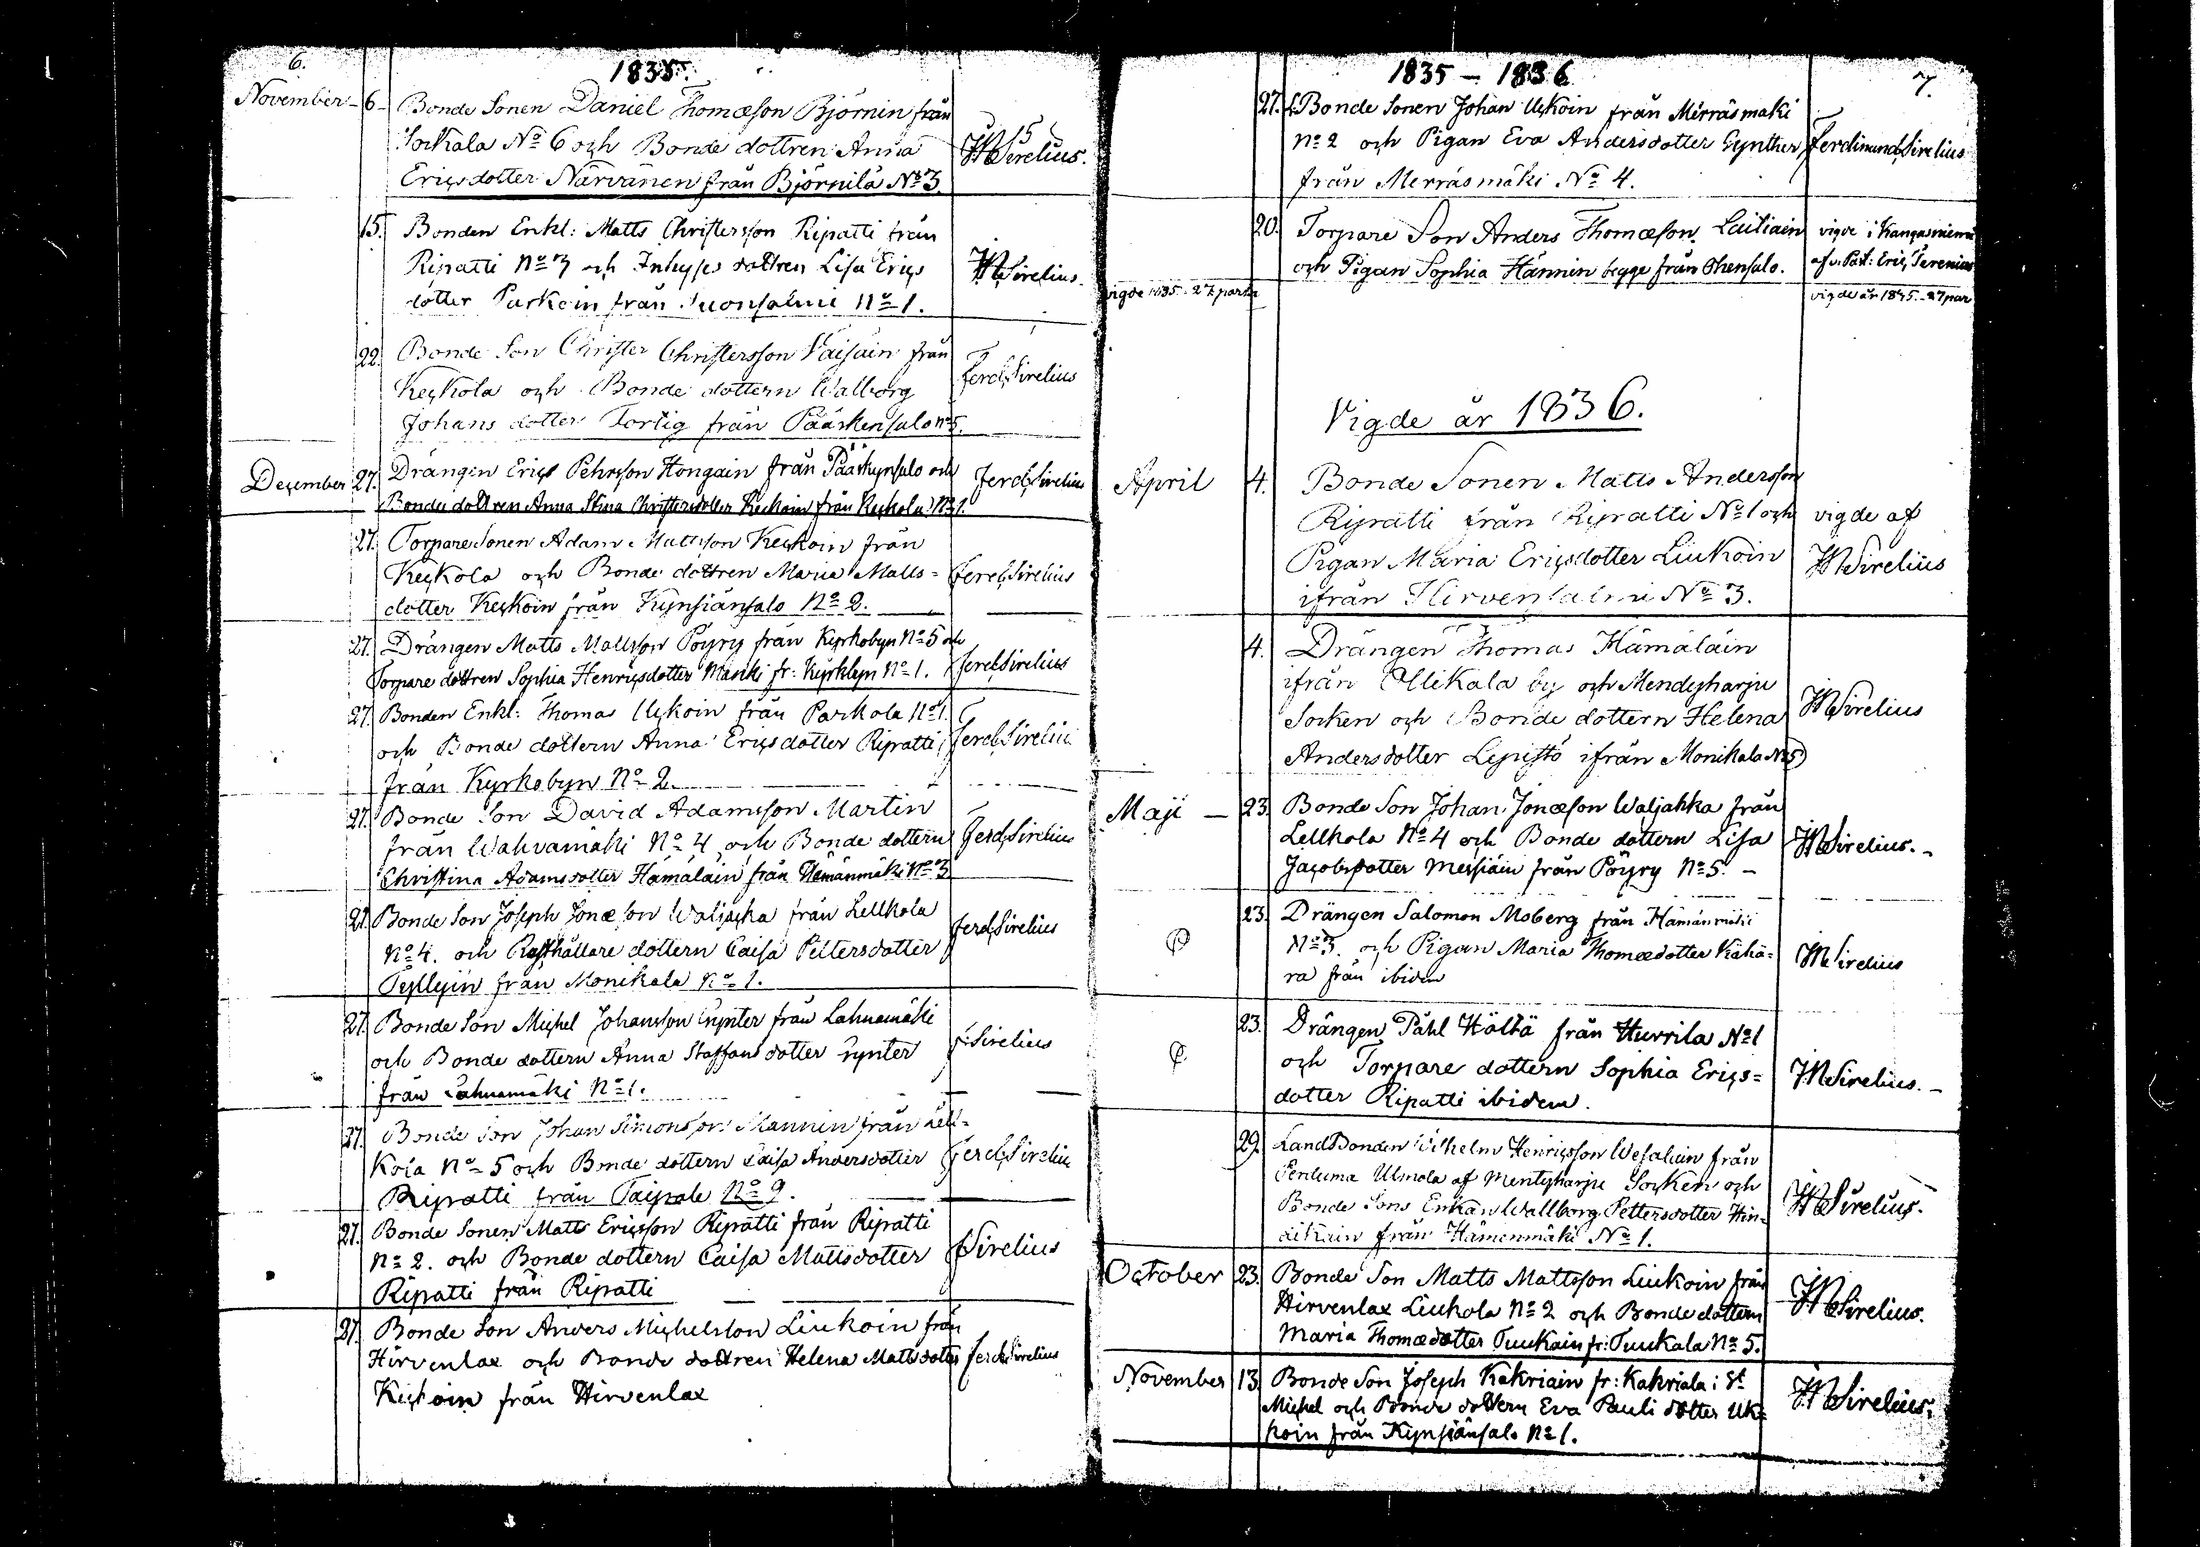 6.
1835.
November - 6 - Bonde Sonen Daniel Thomæson Björnin från
Sockala No 6 och Bonde dottren Anna
Ericsdotter Närvänen från Björnilä No 3.
Sirelius.
15. Bonden Enkl: Matts Christersson Ripatti från
Ripatti No 7 och Inhyses dottren Lisa Erics
dotter Parkoin från Suonsalmi No 1.
Sirelius.
22. Bonde Son Christer Christersson Väisäin från
Keckola och Bonde dottern Walborg
Johans dotter Tortig från Pääskensalo No 5.
Ferd. Sirelius
December 27. Drängen Eric Pehrsson Hongain från Pääskynsalo och
Bonde dottren Anna Stina Christersdotter Keckoin från Keckola No 1.
Ferd. Sirelius
27. Torpare Sonen Adam Mattsson Keckoin från
Keckola och Bonde dottren Maria Matts=
dotter Keckoin från Kynsiänsalo No 2.
Ferd. Sirelius
27. Drängen Matts Mattsson Pöyry från Kyrkobyn No 5 och
Torpare dottren Sophia Henricsdotter Manki fr: Kyrkbyn No 1.
Ferd. Sirelius
27. Bonden Enkl: Thomas Uckoin från Parkola No 1.
och Bonde dottern Anna Ericsdotter Ripatti
från Kyrkobyn No 2.
Ferd. Sirelius
27. Bonde Son David Adamsson Martin
från Wahvamäki No 4 och Bonde dottern
Christina Adamsdotter Hämäläin från Hämänmäki No 3
Ferd. Sirelius
27. Bonde Son Joseph Jonæson Waljacka från Lellkola
No 4. och Rusthållare dottern Caisa Pettersdotter
Tyllyin från Monikala No 1.
Ferd. Sirelius
27. Bonde Son Michel Johansson Gynter från Lahnamäki
och Bonde dottern Anna Staffans dotter Gynter
från Lahnamäki No 1.
F. Sirelius
27. Bonde Son Johan Simonsson Mannin från Lell=
kola No 5 och Bonde dottern Caisa Andersdotter
Ripatti från Taipale No 9.
Ferd. Sirelius
27. Bonde Sonen Matts Ericsson Ripatti från Ripatti
No 2. och Bonde dottern Caisa Mattsdotter
Ripatti från Ripatti
F Sirelius
27. Bonde Son Anders Michelsson Liukoin från
Hirvenlax och Bonde dottren Helena Mattsdotter
Kickoin från Hirvenlax
Ferd. Sirelius
1835 - 1836
7.
27. Bonde Sonen Johan Uckoin från Merräsmäki
No 2 och Pigan Eva Andersdotter Gynther
från Merräsmäki No 4.
Ferdinand Sirelius
20. Torpare Son Anders Thomæson Lailiain
och Pigan Sophia Hännin begge från Ohensalo.
vigde i Kangasniemi
af v. Past: Eric Terenius
vigde 1835. 27 par
vigde år 1835. 27 par
Vigde år 1836.
April 4. Bonde Sonen Matts Andersson
Ripatti från Ripatti No 1 och
Pigan Maria Ericsdotter Liukoin
ifrån Hirvensalmi No 3.
vigde af
Sirelius
4. Drängen Thomas Hämäläin
ifrån Ollikala by och Mendyharju
Socken och Bonde dottern Helena
Andersdotter Lepistö ifrån Monikala No 5
Sirelius
Maji - 23. Bonde Son Johan Jonæson Waljahka från
Lellkola No 4 och Bonde dottern Lisa
Jacobsdotter Messiäin från Pöyry No 5. -
Sirelius. -
23. Drängen Salomon Moberg från Hämänmäki
No 3. och Pigan Maria Thomædotter Kähä=
ra från ibidem
Sirelius
23. Drängen Påhl Höltä från Hurrila No 1
och Torpare dottern Sophia Erics=
dotter Ripatti ibidem.
Sirelius. -
29. LandBonden Wilhelm Henricsson Wesalain från
Perduma Ulmola af Mentyharju Socken och
Bonde Sons Enkan Wallborg Pettersdotter Hin=
dikain från Hämenmäki No 1.
Sirelius.
October 23. Bonde Son Matts Mattsson Liukoin från
Hirvenlax Liukola No 2 och Bonde dottern
Maria Thomædotter Tuukain fr: Tuukala No 5.
Sirelius.
November 13. Bonde Son Joseph Kakriain fr: Kakriala i St
Michel och Bonde dottern Eva Pauli dotter Uk=
koin från Kynsiänsalo No 1.
Sirelius.